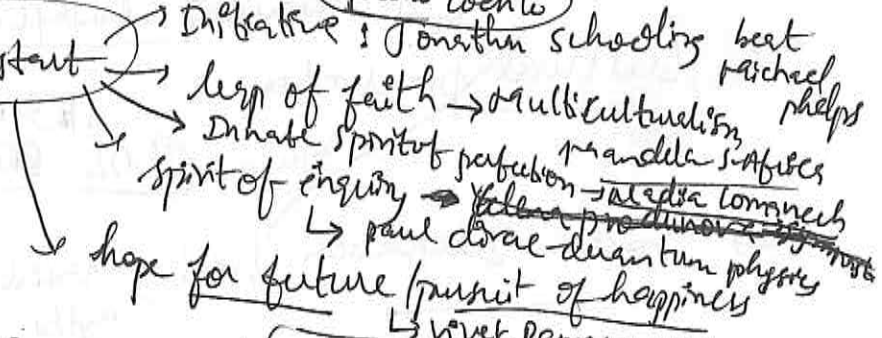 start
Initiative : Jonathn schooling beat Michael phelps
leap of faith → Multiculturalism
Mandela S-Africa
Innate spirit of perfection → Nadia Comanech
Spirit of enquiry →
↳ paul dirac - quantum physics
hope for future / pursuit of happiness
↳